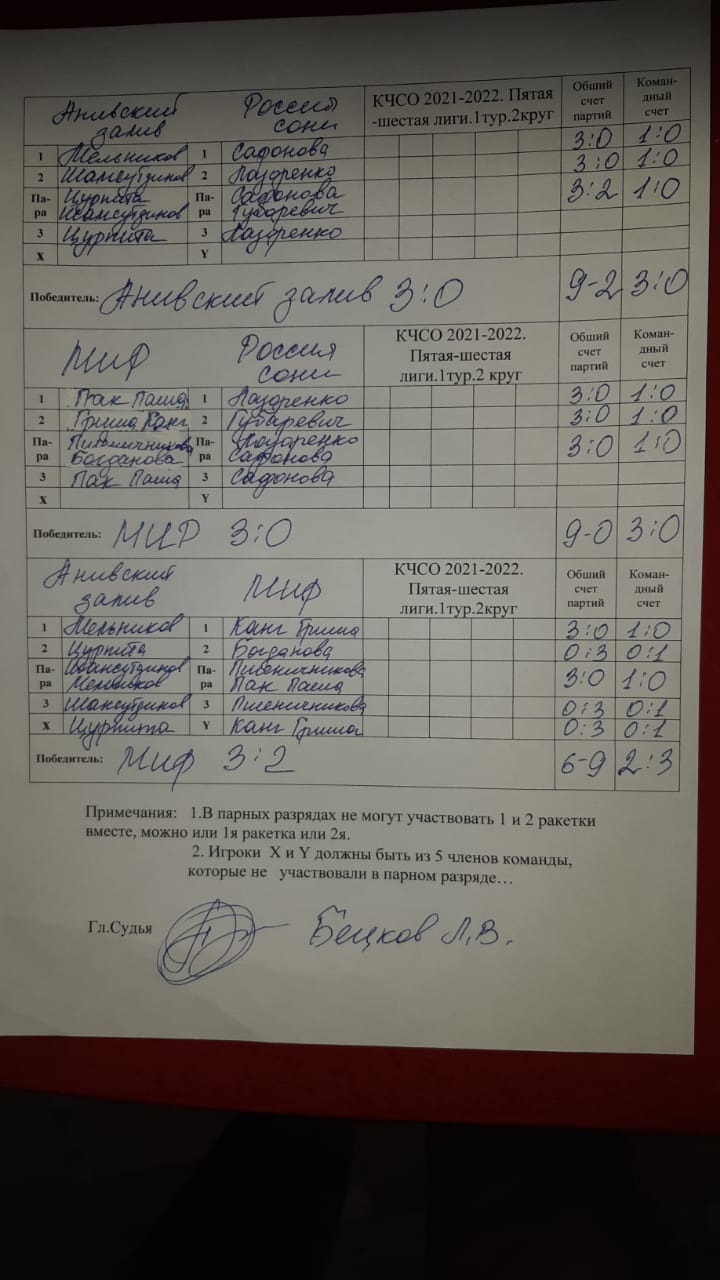 Анивский залив Россия сони КЧСО 2021-2022. Пятая -шестая лиги.1тур.2круг Обший счет партий Коман-дный счет
1 Мельников 1 Сафонова 3:0 1:0
2 Шамсутдинов 2 Назаренко 3:0 1:0
Па-ра Цурпита Шамсутдинов Па-ра Сафонова Губаревич 3:2 1:0
3 Цурпита 3 Назаренко
X Y
Победитель: Анивский залив 3:0 9-2 3:0
Миф Россия сони КЧСО 2021-2022. Пятая-шестая лиги.1тур.2 круг Обший счет партий Коман-дный счет
1 Пак Паша 1 Назаренко 3:0 1:0
2 Гриша Канг 2 Губаревич 3:0 1:0
Па-ра Пшеничникова Богданова Па-ра Назаренко Сафонова 3:0 1:0
3 Пак Паша 3 Сафонова
X Y
Победитель: МИФ 3:0 9-0 3:0
Анивский залив Миф КЧСО 2021-2022. Пятая-шестая лиги.1тур.2круг Обший счет партий Коман-дный счет
1 Мельников 1 Канг Гриша 3:0 1:0
2 Цурпита 2 Богданова 0:3 0:1
Па-ра Шамсутдинов Мельников Па-ра Пшеничникова Пак Паша 3:0 1:0
3 Шамсутдинов 3 Пшеничникова 0:3 0:1
X Цурпита Y Канг Гриша 0:3 0:1
Победитель: Миф 3:2 6-9 2:3
Примечания: 1.В парных разрядах не могут участвовать 1 и 2 ракетки
вместе, можно или 1я ракетка или 2я.
2. Игроки X и Y должны быть из 5 членов команды,
которые не участвовали в парном разряде…
Гл.Судья Бецков Л.В.